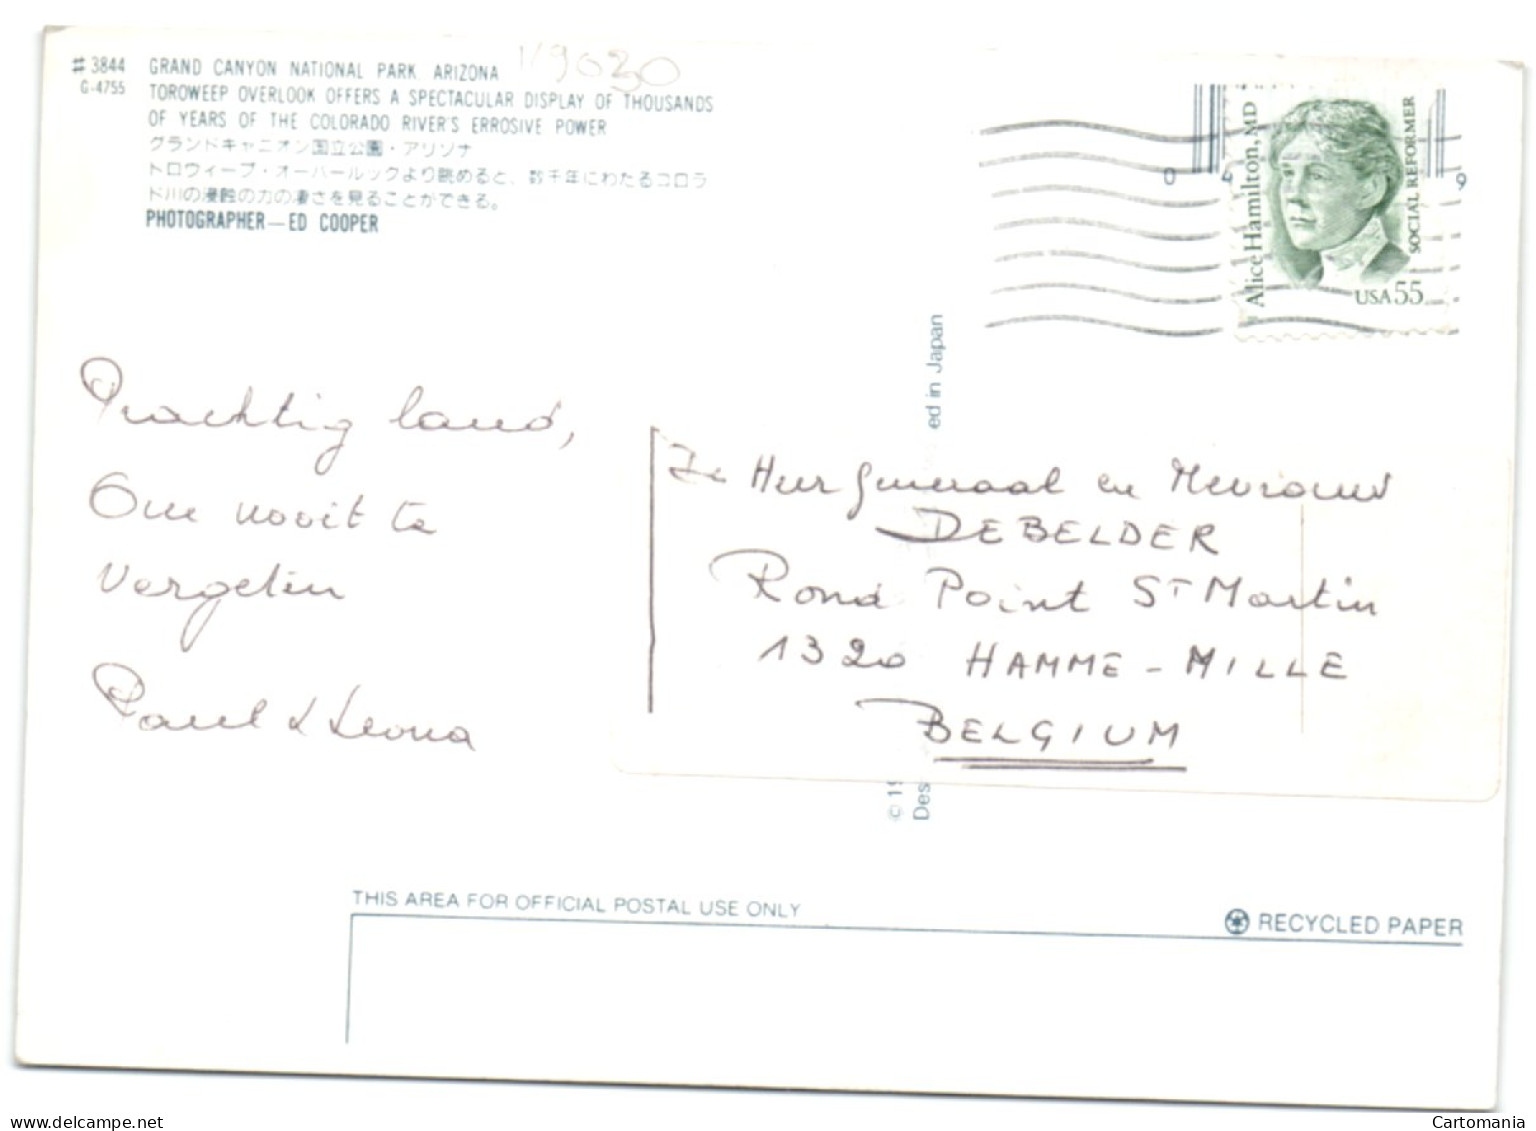 # 3844 GRAND CANYON NATIONAL PARK ARIZONA
G-4755 TOROWEEP OVERLOOK OFFERS A SPECTACULAR DISPLAY OF THOUSANDS
OF YEARS OF THE COLORADO RIVER'S ERROSIVE POWER
グランドキャニオン国立公園・アリゾナ
トロウィープ・オーバールックより眺めると、数千年にわたるコロラ
ド川の浸蝕の力の凄さを見ることができる。
PHOTOGRAPHER—ED COOPER
1/9030
Alice Hamilton, MD
SOCIAL REFORMER
USA 55
0 4
9
ed in Japan
Prachtig land,
Om nooit te
vergeten
Paul & Leona
De Heer Generaal en Mevrouw
DEBELDER
Rond Point St Martin
1320 HAMME-MILLE
BELGIUM
© 19
Des
THIS AREA FOR OFFICIAL POSTAL USE ONLY
RECYCLED PAPER
www.delcampe.net
Cartomania